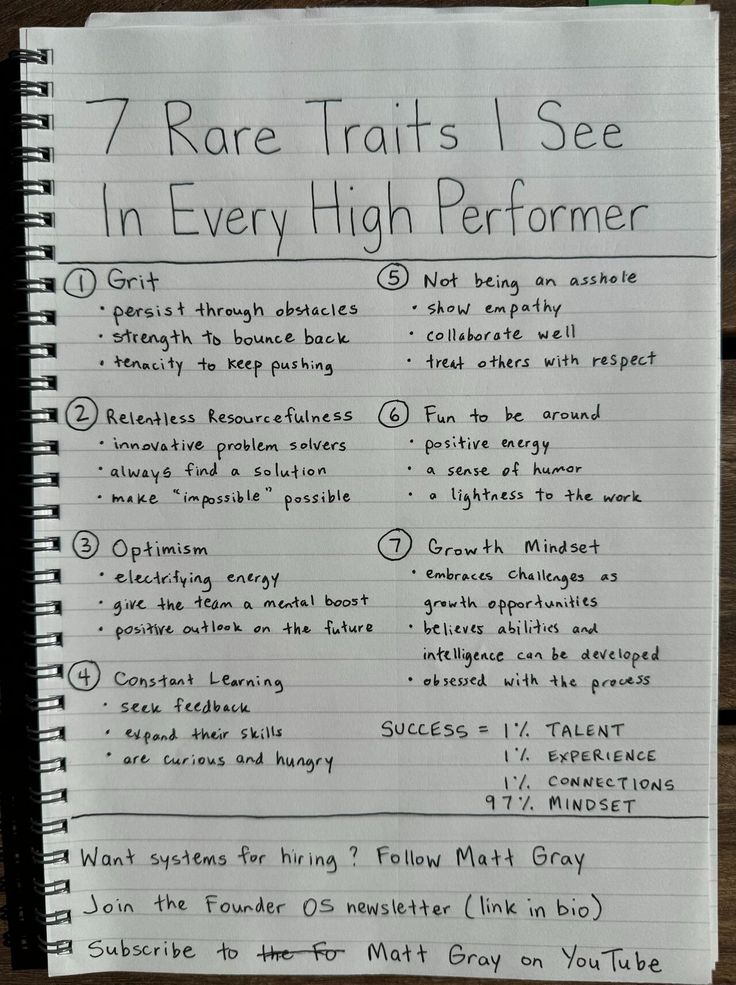 7 Rare Traits I See
In Every High Performer
① Grit
• persist through obstacles
• strength to bounce back
• tenacity to keep pushing
② Relentless Resourcefulness
• innovative problem solvers
• always find a solution
• make "impossible" possible
③ Optimism
• electrifying energy
• give the team a mental boost
• positive outlook on the future
④ Constant Learning
• seek feedback
• expand their skills
• are curious and hungry
⑤ Not being an asshole
• show empathy
• collaborate well
• treat others with respect
⑥ Fun to be around
• positive energy
• a sense of humor
• a lightness to the work
⑦ Growth Mindset
• embraces challenges as
growth opportunities
• believes abilities and
intelligence can be developed
• obsessed with the process
SUCCESS = 1% TALENT
1% EXPERIENCE
1% CONNECTIONS
97% MINDSET
Want systems for hiring? Follow Matt Gray
Join the Founder OS newsletter (link in bio)
Subscribe to the Fo Matt Gray on YouTube